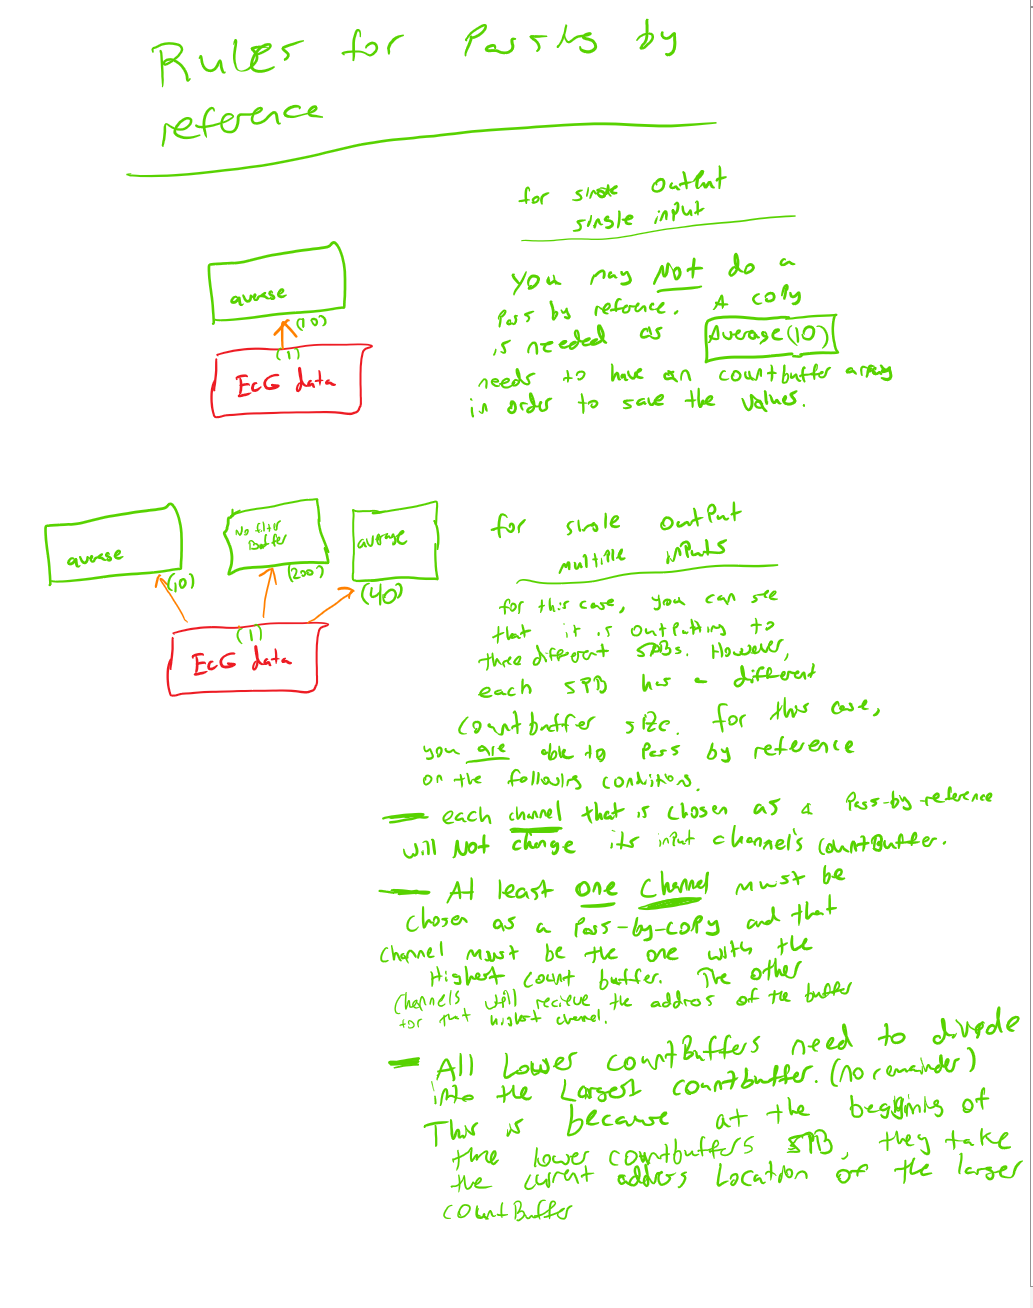 Rules for Passing by
reference
for single output
single input
average
(10)
(1)
EcG data
You may Not do a
Pass by reference. A copy
is needed as Average(10)
needs to have an countbuffer array
in order to save the values.
average
(10)
No filter
Buffer
(200)
average
(40)
(1)
EcG data
for single output
multiple inputs
for this case, you can see
that it is outputting to
three different SPBs. However,
each SPB has a different
countbuffer size. for this case,
you are able to pass by reference
on the following conditions.
- each channel that is chosen as a Pass-by-reference
will Not change its input channel's countBuffer.
- At least one channel must be
chosen as a Pass-by-copy and that
channel must be the one with the
Highest count buffer. The other
channels will recieve the address of the buffer
for that highest channel.
- All Lower countBuffers need to divide
into the Largest countbuffer. (no remainder)
This is because at the beggining of
the lower countbuffers SPB, they take
the current address Location of the larger
countBuffer